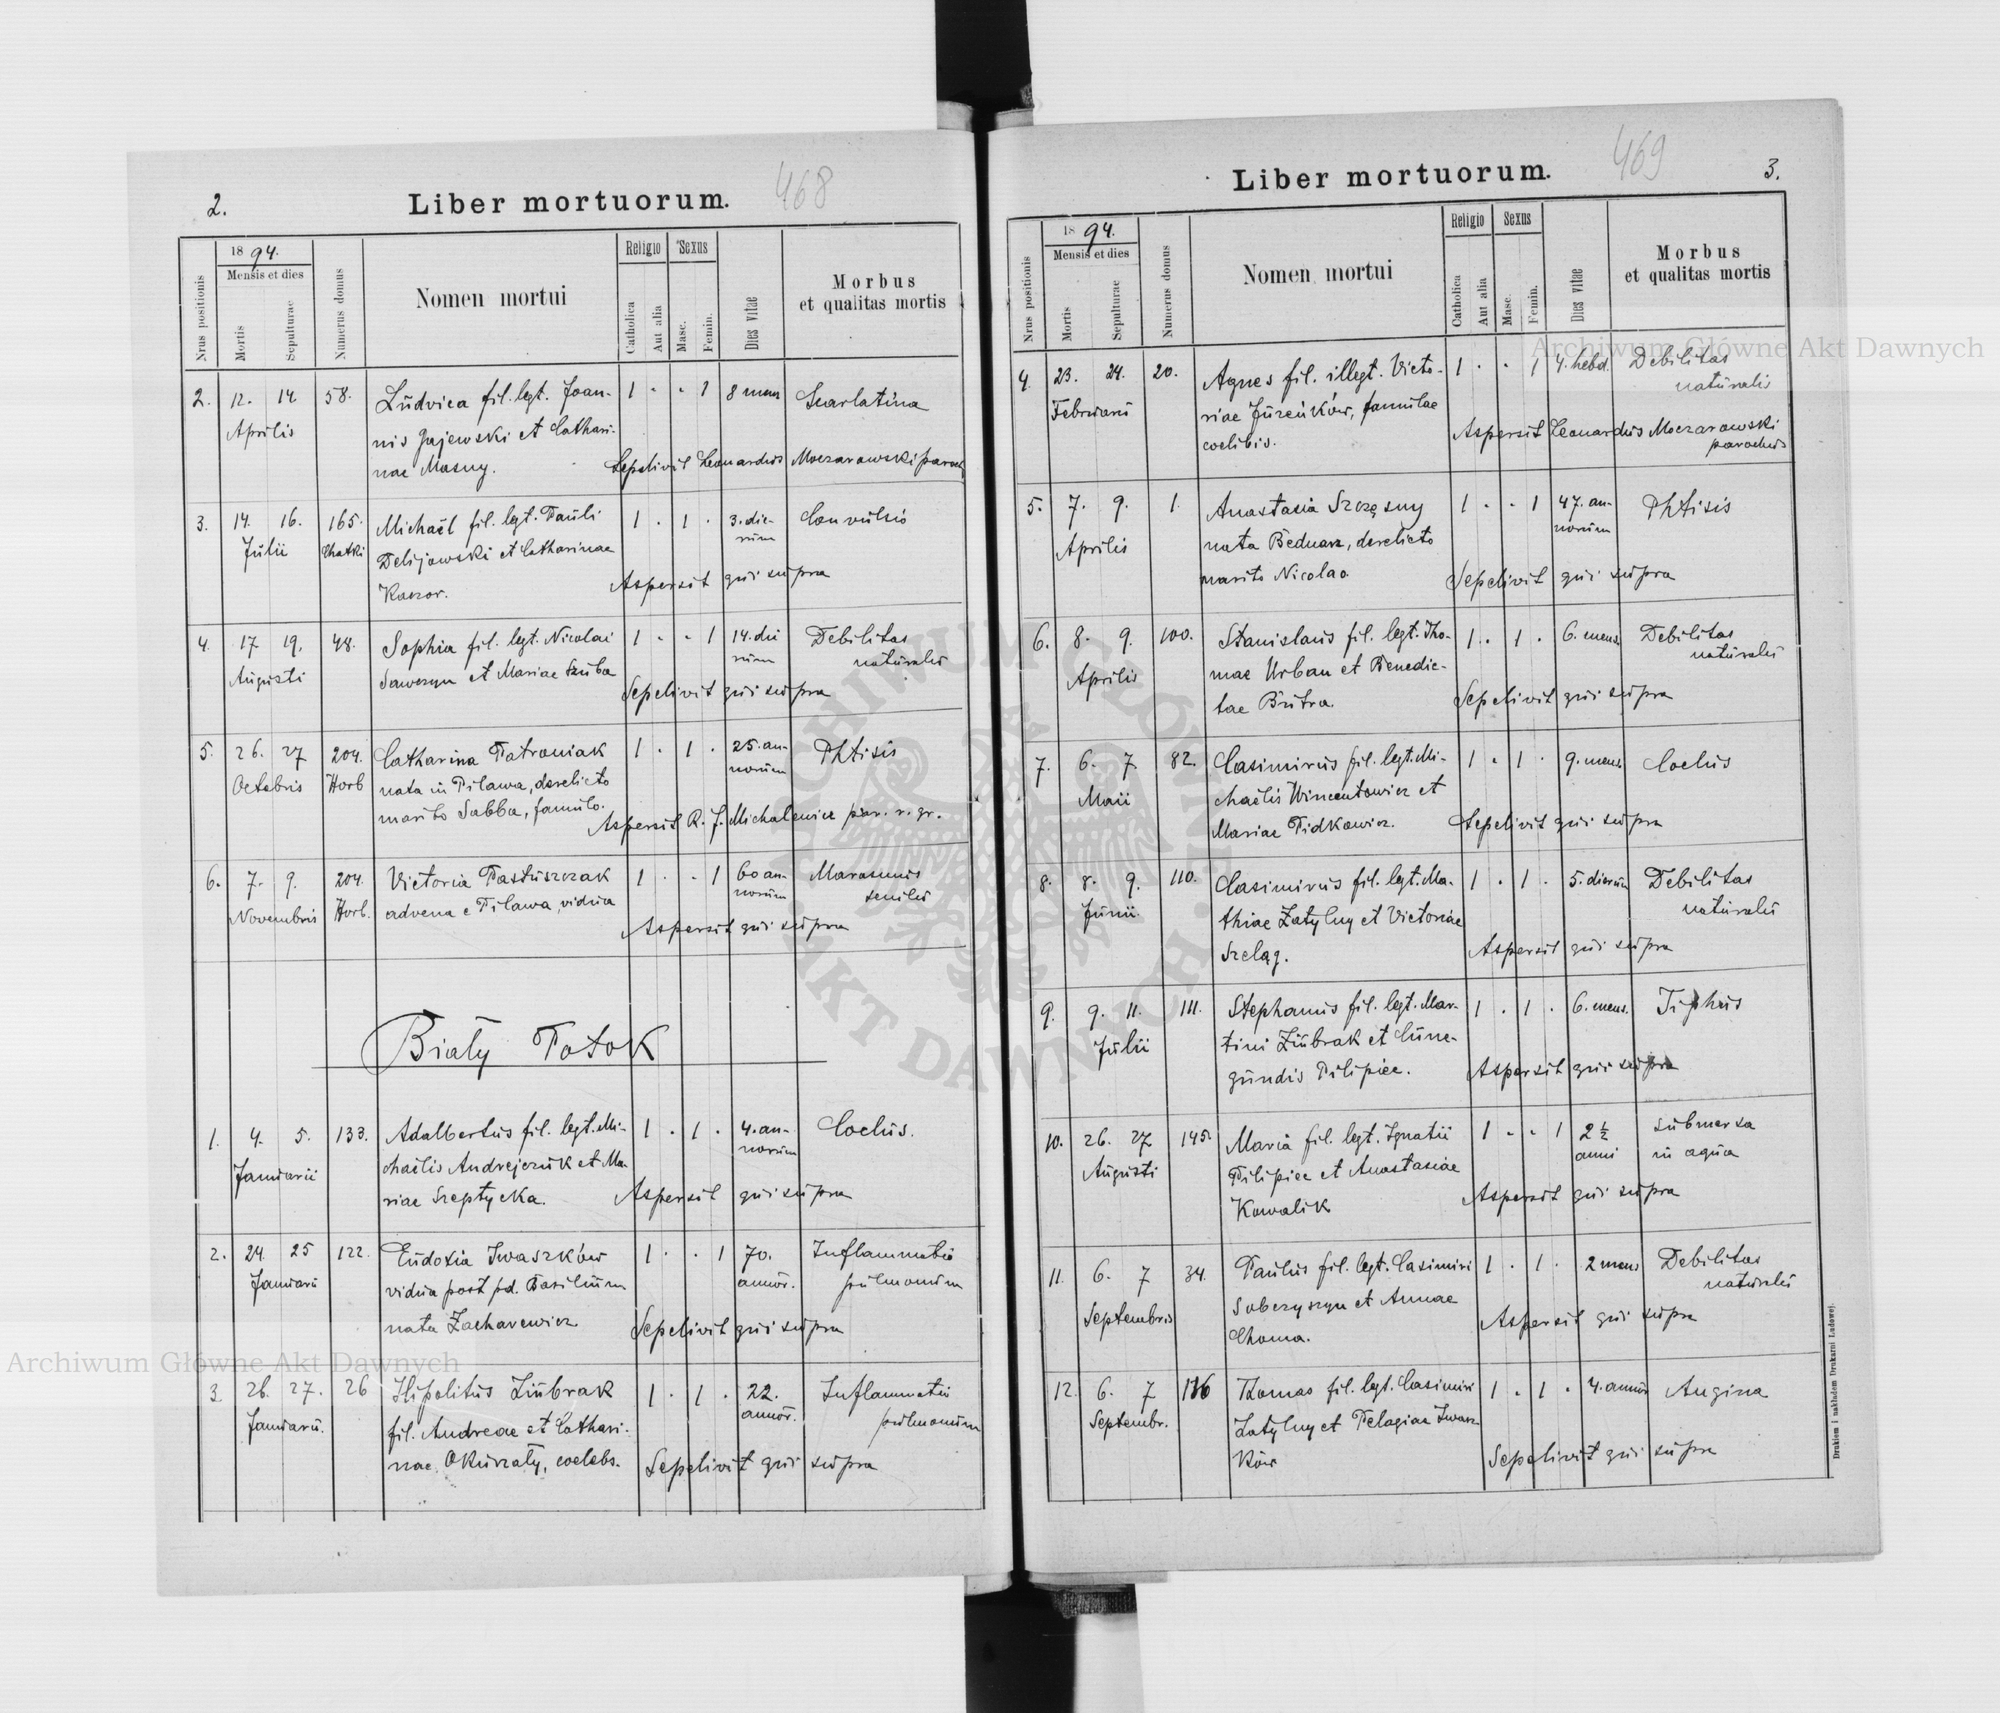 2.
Liber mortuorum.
468
Nrus positionis
1894.
Mensis et dies
Mortis
Sepulturae
Numerus domus
Nomen mortui
Religio
Catholica
Aut alia
Sexus
Masc.
Femin.
Dies vitae
Morbus
et qualitas mortis
2. 12. 14 58. Ludvica fil. legt. Joan- 1 . . 1 8 mens Scarlatina
Aprilis
nis Gajewski et Cathari-
nae Masny. Sepelivit Leonardus Moczarowski paroch
3. 14. 16. 165. Michaël fil. legt. Pauli 1 . 1 . 3. die- Convulsio
Julii Chatki rum
Delijowski et Catharinae
Kaczor. Aspersit qui supra
4. 17 19. 48. Sophia fil. legt. Nicolai 1 . . 1 14. die Debilitas
Augusti rum naturalis
Sawczyn et Mariae Szuba
Sepelivit qui supra
5. 26. 27 204. Catharina Patroniak 1 . 1 . 25. an- Phtisis
Octobris Horb nata in Pilawa, derelicto norum
marito Sabba, famulo.
Aspersit R. J. Michalewicz par. r. gr.
6. 7. 9. 204. Victoria Pastuszczak 1 . . 1 60 an- Marasmus
Novembris Horb. advena e Pilawa, vidua norum senilis
Aspersit qui supra
Biały Potok
1. 4. 5. 133. Adalbertus fil. legt. Mi- 1 . 1 . 4. an- Coclus.
Januarii chaëlis Andrejczuk et Ma- norum
riae Szeptycka. Aspersit qui supra
2. 24. 25 122. Eudoxia Iwaszków 1 . . 1 70. Inflammatio
Januarii vidua post pd. Basilium annor. pulmonum
nata Zacharewicz Sepelivit qui supra
3. 26. 27. 26 Hipolitus Ziubrak 1 . 1 . 22. Inflammatio
Januarii. fil. Andreae et Cathari- annor. pulmonum
nae Okurzaty, coelebs. Sepelivit qui supra
Liber mortuorum.
469
3.
Nrus positionis
1894.
Mensis et dies
Mortis
Sepulturae
Numerus domus
Nomen mortui
Religio
Catholica
Aut alia
Sexus
Masc.
Femin.
Dies vitae
Morbus
et qualitas mortis
4. 23. 24. 20. Agnes fil. illegt. Victo- 1 . . 1 4. hebd. Debilitas
Februarii naturalis
riae Jureńków, famulae
coelibis. Aspersit Leonardus Moczarowski
parochus
5. 7. 9. 1. Anastasia Szczęsny 1 . . 1 47. an- Phtisis
Aprilis nata Bednarz, derelicto norum
marito Nicolao. Sepelivit qui supra
6. 8. 9. 100. Stanislaus fil. legt. Tho- 1 . 1 . 6. mens. Debilitas
Aprilis mae Urban et Benedic- naturalis
tae Butra. Sepelivit qui supra
7. 6. 7 82. Casimirus fil. legt. Mi- 1 . 1 . 9. mens. Coclus
Maii chaëlis Wincentowicz et
Mariae Pidkowicz. Sepelivit qui supra
8. 8. 9. 110. Casimirus fil. legt. Ma- 1 . 1 . 5. dierum Debilitas
Junii. thiae Zatylny et Victoriae naturalis
Szeląg. Aspersit qui supra
9. 9. 11. 111. Stephanus fil. legt. Mar- 1 . 1 . 6. mens. Tiphus
Julii tini Ziubrak et Cune-
gundis Pilipiec. Aspersit qui supra
10. 26. 27 145. Maria fil. legt. Ignatii 1 . . 1 2 ½ submersa
Augusti Pilipiec et Anastasiae anni in aqua
Kowalik Aspersit qui supra
11. 6. 7 34. Paulus fil. legt. Casimiri 1 . 1 . 2 mens Debilitas
Septembris Soberyszyn et Annae naturalis
Choma. Aspersit qui supra
12. 6. 7 116 Thomas fil. legt. Casimiri 1 . 1 . 4. annor Angina
Septembr. Zatylny et Pelagiae Iwasz-
ków Sepelivit qui supra
Drukiem i nakładem Drukarni Ludowej.
Archiwum Główne Akt Dawnych
Archiwum Główne Akt Dawnych
ARCHIWUM GŁÓWNE AKT DAWNYCH